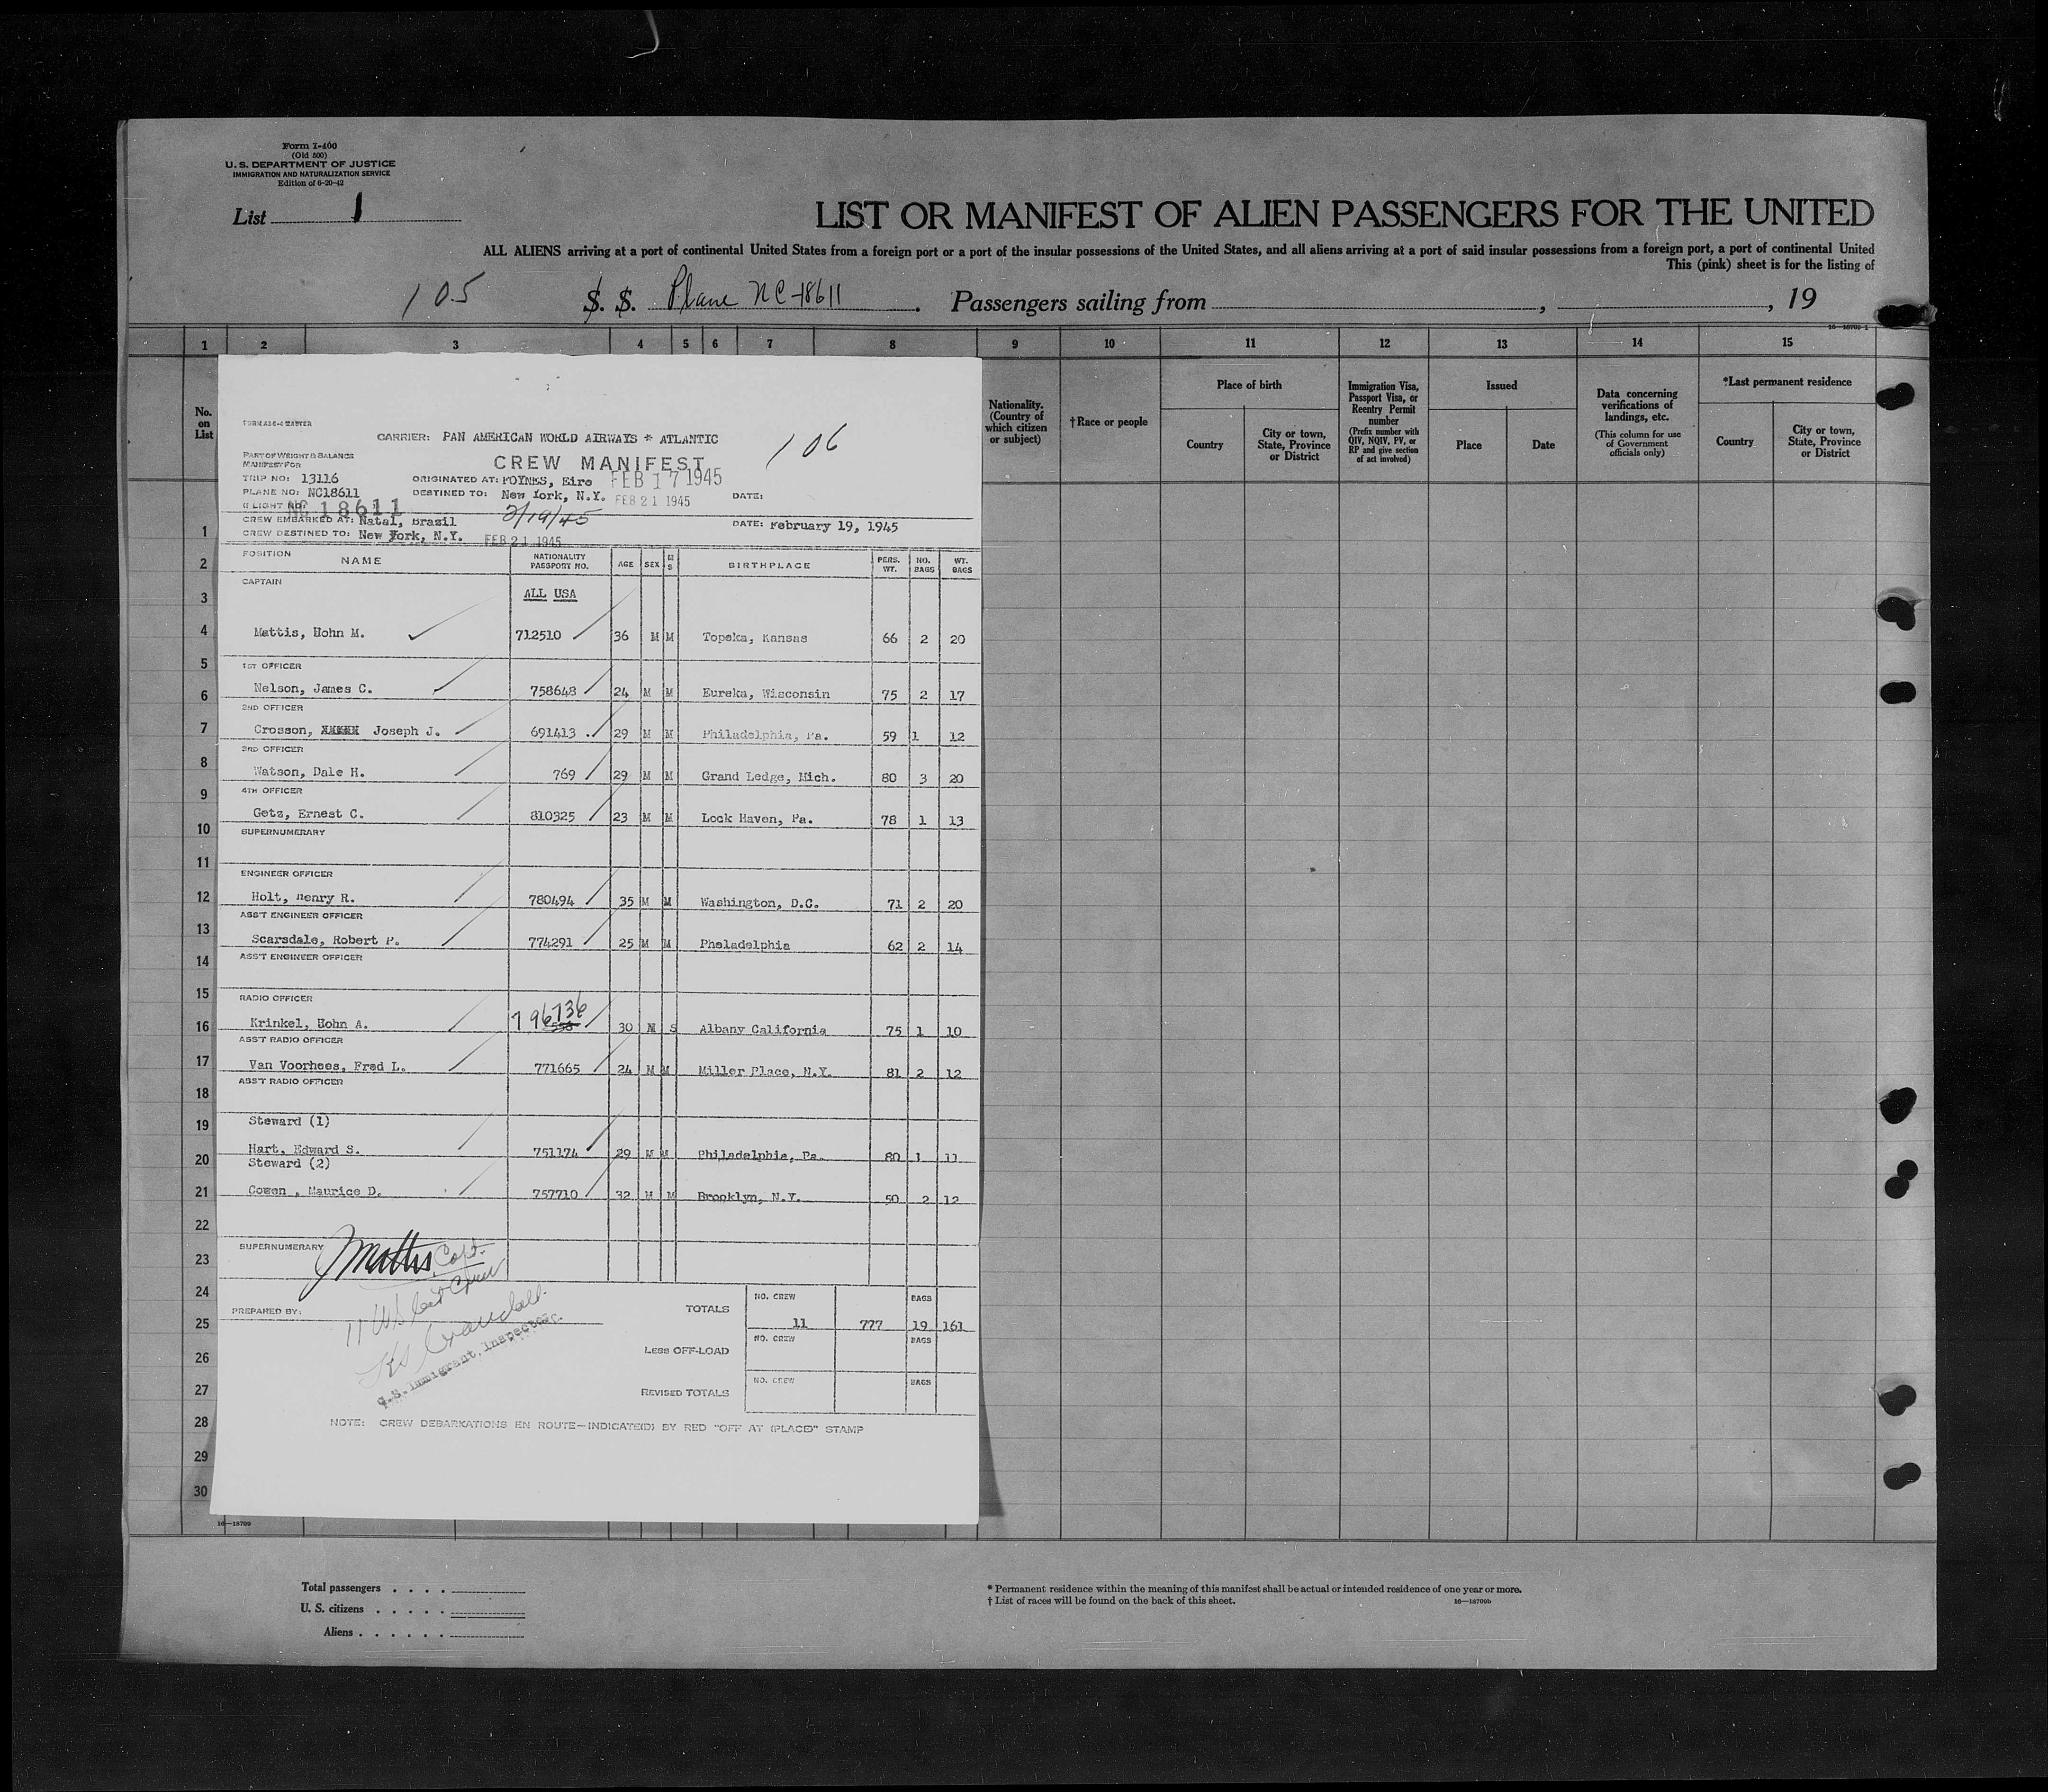 Form I-400
(Old 500)
U. S. DEPARTMENT OF JUSTICE
IMMIGRATION AND NATURALIZATION SERVICE
Edition of 6-20-42
List 1
LIST OR MANIFEST OF ALIEN PASSENGERS FOR THE UNITED
ALL ALIENS arriving at a port of continental United States from a foreign port or a port of the insular possessions of the United States, and all aliens arriving at a port of said insular possessions from a foreign port, a port of continental United
This (pink) sheet is for the listing of
105 S. S. Plane NC-18611. Passengers sailing from , , 19
16—18709-1
1 2 3 4 5 6 7 8 9 10 11 12 13 14 15
No. on List
Nationality. (Country of which citizen or subject)
†Race or people
Place of birth
Country
City or town, State, Province or District
Immigration Visa, Passport Visa, or Reentry Permit number
(Prefix number with QIV, NQIV, PV, or RP and give section of act involved)
Issued
Place
Date
Data concerning verifications of landings, etc.
(This column for use of Government officials only)
*Last permanent residence
Country
City or town, State, Province or District
1
2
3
4
5
6
7
8
9
10
11
12
13
14
15
16
17
18
19
20
21
22
23
24
25
26
27
28
29
30
CARRIER: PAN AMERICAN WORLD AIRWAYS * ATLANTIC
106
CREW MANIFEST
PART OF WEIGHT & BALANCE
MANIFEST FOR
TRIP NO: 13116
ORIGINATED AT: FOYNES, Eire FEB 17 1945
PLANE NO: NC18611
DESTINED TO: New York, N.Y. FEB 21 1945 DATE:
FLIGHT NO: NC 18611
CREW EMBARKED AT: Natal, Brazil 2/19/45 DATE: February 19, 1945
CREW DESTINED TO: New York, N.Y. FEB 21 1945
POSITION NAME NATIONALITY PASSPORT NO. AGE SEX M S BIRTHPLACE PERS. WT. NO. BAGS WT. BAGS
CAPTAIN
ALL USA
Mattis, Hohn M. 712510 36 M M Topeka, Kansas 66 2 20
1ST OFFICER
Nelson, James C. 758648 24 M M Eureka, Wisconsin 75 2 17
2ND OFFICER
Crosson, Joseph J. 691413 29 M M Philadelphia, Pa. 59 1 12
3RD OFFICER
Watson, Dale H. 769 29 M M Grand Ledge, Mich. 80 3 20
4TH OFFICER
Getz, Ernest C. 810325 23 M M Lock Haven, Pa. 78 1 13
SUPERNUMERARY
ENGINEER OFFICER
Holt, Henry R. 780494 35 M M Washington, D.C. 71 2 20
ASS'T ENGINEER OFFICER
Scarsdale, Robert P. 774291 25 M M Pheladelphia 62 2 14
ASS'T ENGINEER OFFICER
RADIO OFFICER
Krinkel, Hohn A. 796736 30 M S Albany California 75 1 10
ASS'T RADIO OFFICER
Van Voorhees, Fred L. 771665 24 M M Miller Place, N.Y. 81 2 12
ASS'T RADIO OFFICER
Steward (1)
Hart, Edward S. 751174 29 M M Philadelphia, Pa. 80 1 11
Steward (2)
Cowen, Maurice D. 757710 32 M M Brooklyn, N.Y. 50 2 12
SUPERNUMERARY
JMattis, Capt.
PREPARED BY:
11 US Cit Crew
Crandall
U.S. Immigrant Inspector
TOTALS
NO. CREW BAGS
11 777 19 161
LESS OFF-LOAD
NO. CREW BAGS
REVISED TOTALS
NO. CREW BAGS
NOTE: CREW DEBARKATIONS EN ROUTE—INDICATE(D) BY RED "OFF AT (PLACE)" STAMP
16—18709
Total passengers . . . .
U. S. citizens . . . . .
Aliens . . . . . .
* Permanent residence within the meaning of this manifest shall be actual or intended residence of one year or more.
† List of races will be found on the back of this sheet.
16—18709b